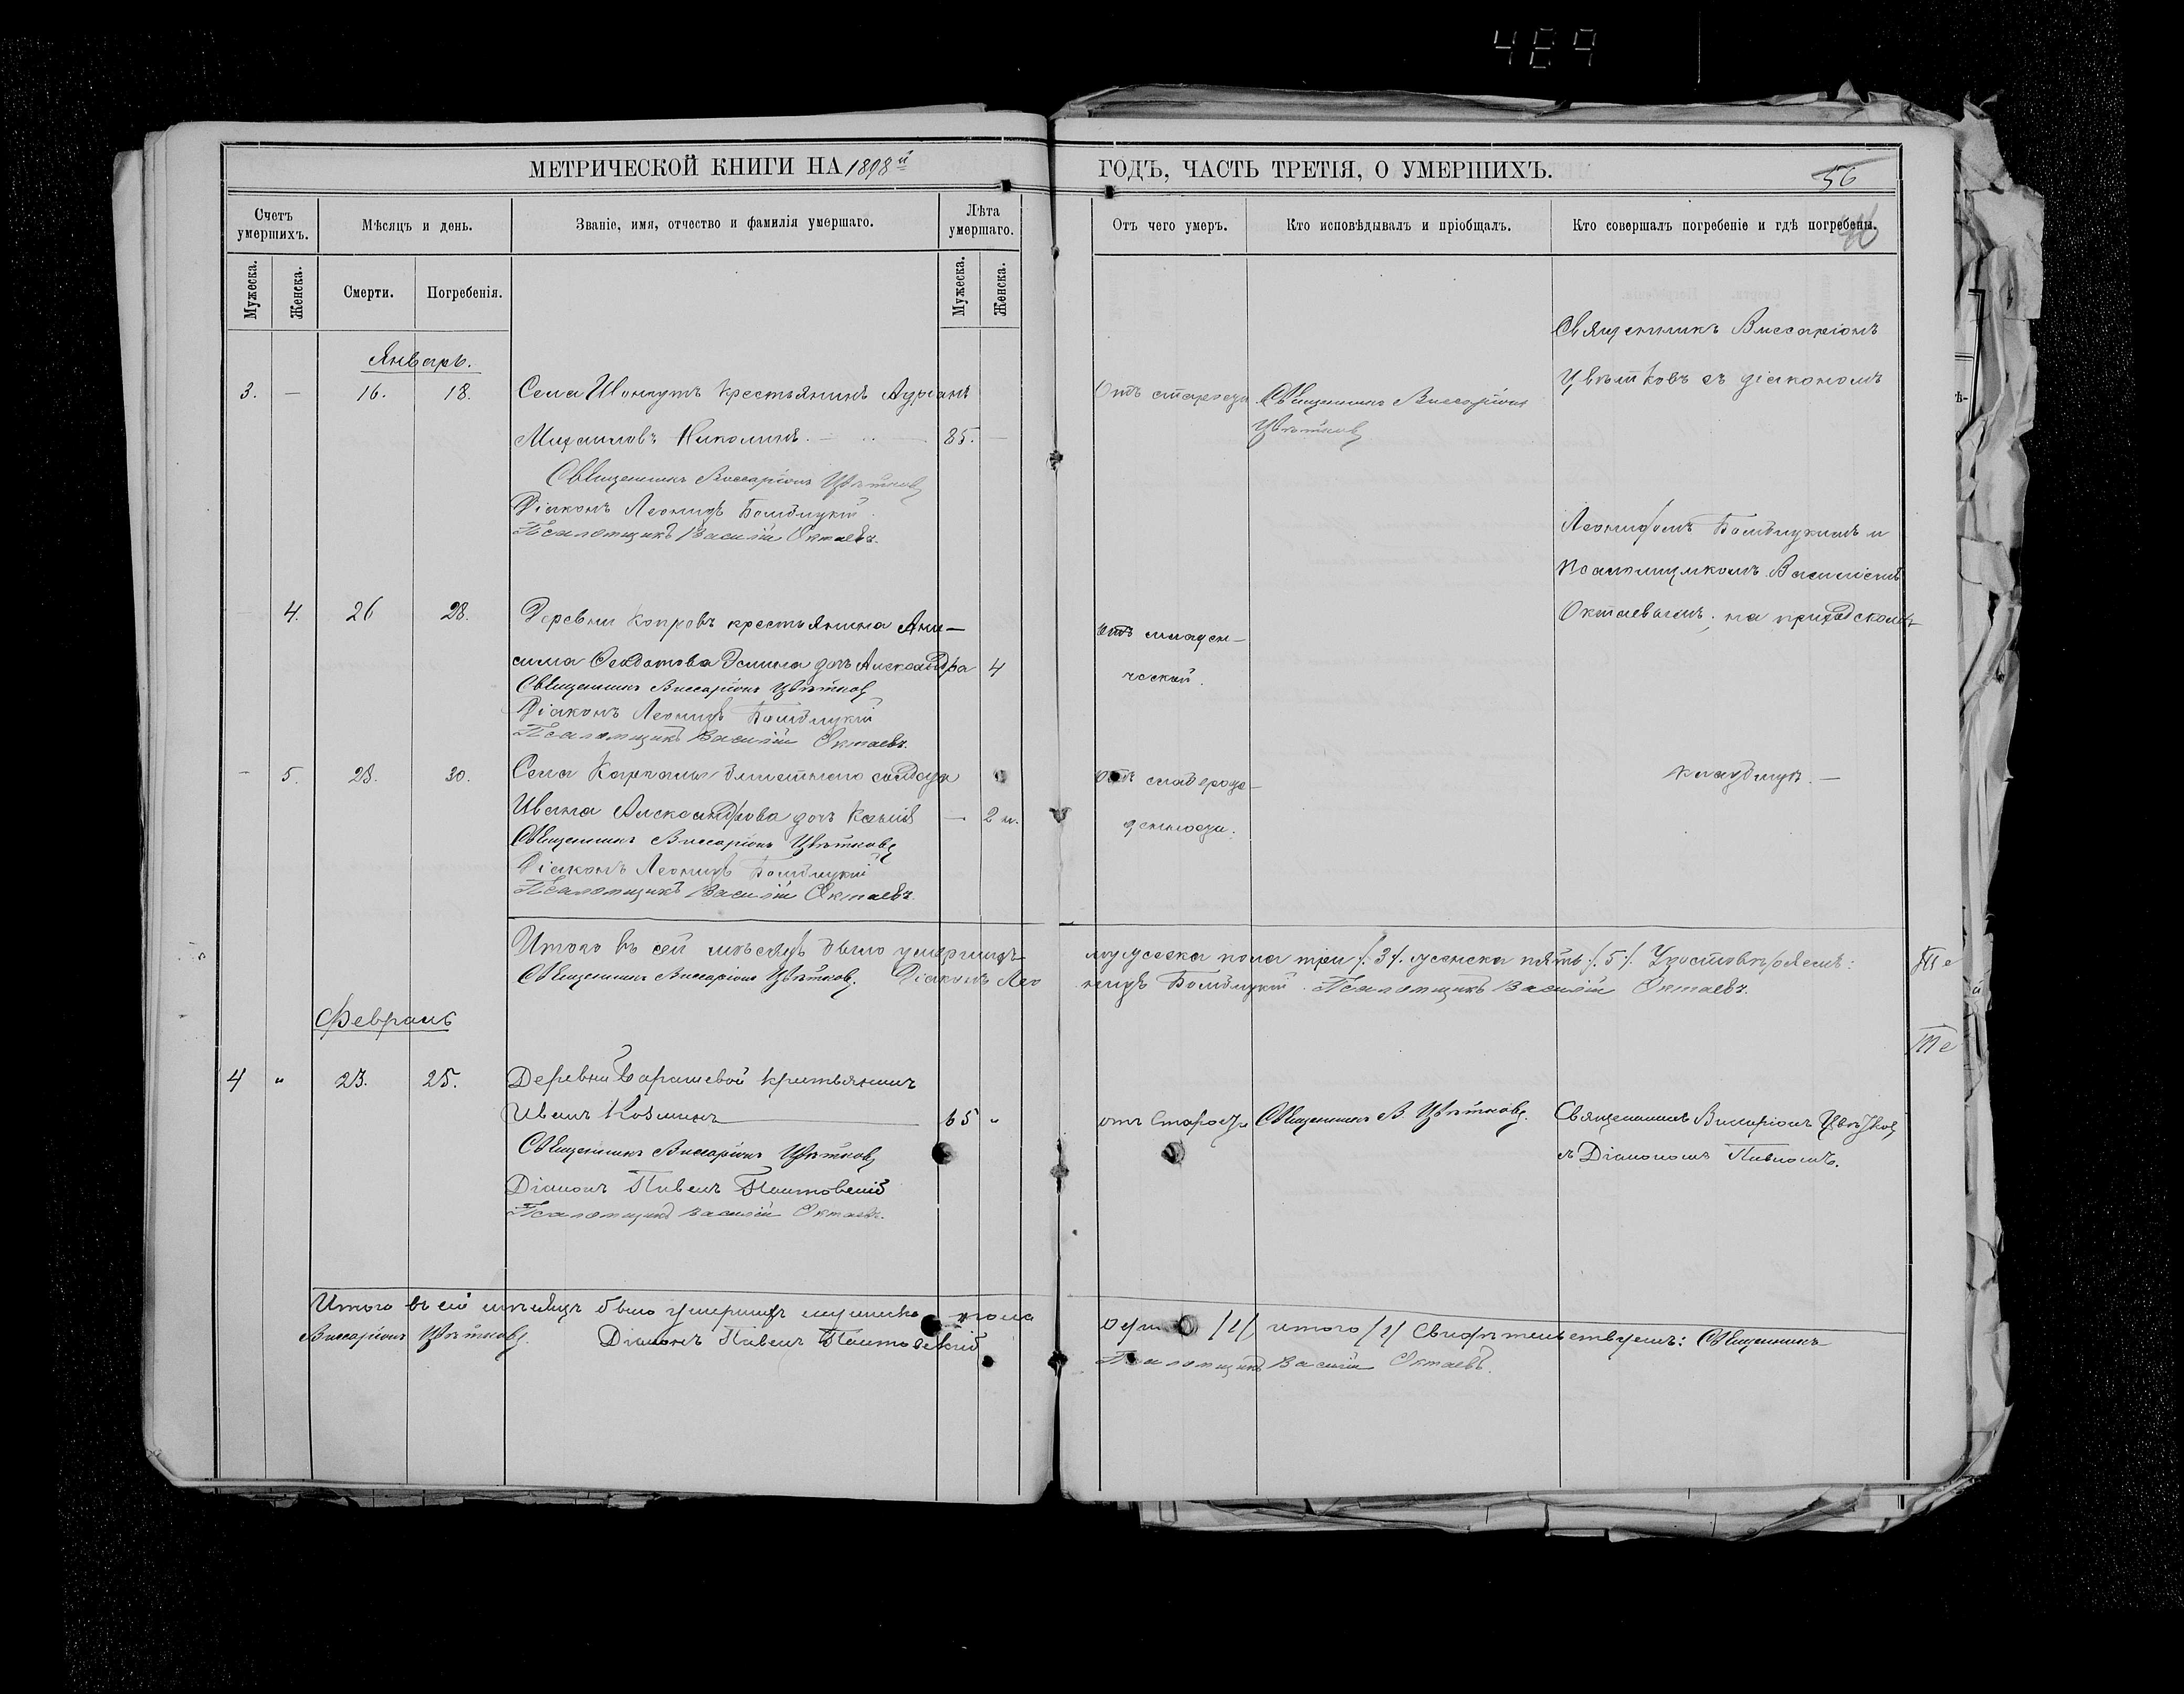 489
МЕТРИЧЕСКОЙ КНИГИ НА 1898й
ГОДЪ, ЧАСТЬ ТРЕТІЯ, О УМЕРШИХЪ.
56
Счетъ умершихъ.
Мѣсяцъ и день.
Званіе, имя, отчество и фамилія умершаго.
Лѣта умершаго.
Отъ чего умеръ.
Кто исповѣдывалъ и пріобщалъ.
Кто совершалъ погребеніе и гдѣ погребены.
Мужеска.
Женска.
Смерти.
Погребенія.
Мужеска.
Женска.
Январь.
Священникъ Виссаріонъ
Цвѣтковъ съ діакономъ
3. — 16. 18. Села крестьянинъ
Николинъ. — 85. —
Отъ старости
Священникъ Виссаріонъ
Цвѣтковъ
Священникъ Виссаріонъ Цвѣтковъ
Діаконъ Леонидъ
Псаломщикъ Василій Октаевъ.
Леонидомъ и
псаломщикомъ Василіемъ
Октаевымъ; на приходскомъ
4. 26 28. Деревни крестьянина Ани-
сима дочь Александра 4
Отъ младен-
ческой.
Священникъ Виссаріонъ Цвѣтковъ
Діаконъ Леонидъ
Псаломщикъ Василій Октаевъ.
— 5. 28. 30. Села солдата
Ивана Александрова дочь — 2 н.
Отъ слаборож-
денности.
кладбищѣ. —
Священникъ Виссаріонъ Цвѣтковъ
Діаконъ Леонидъ
Псаломщикъ Василій Октаевъ.
Итого въ сей мѣсяцъ было умершихъ мужеска пола три /.3/. женска пять /.5/. Удостовѣряемъ:
Священникъ Виссаріонъ Цвѣтковъ. Діаконъ Леонидъ Псаломщикъ Василій Октаевъ.
Февраль
4 " 23. 25. Деревни крестьянинъ
Иванъ Козминъ 65 "
отъ старости
Священникъ В. Цвѣтковъ.
Священникъ Виссаріонъ Цвѣтковъ
съ Діакономъ Павломъ.
Священникъ Виссаріонъ Цвѣтковъ
Діаконъ Павелъ
Псаломщикъ Василій Октаевъ.
Итого въ сей мѣсяцъ было умершихъ мужеска пола /1/ итого /1/ Свидѣтельствуемъ: Священникъ
Виссаріонъ Цвѣтковъ. Діаконъ Павелъ
Псаломщикъ Василій Октаевъ.